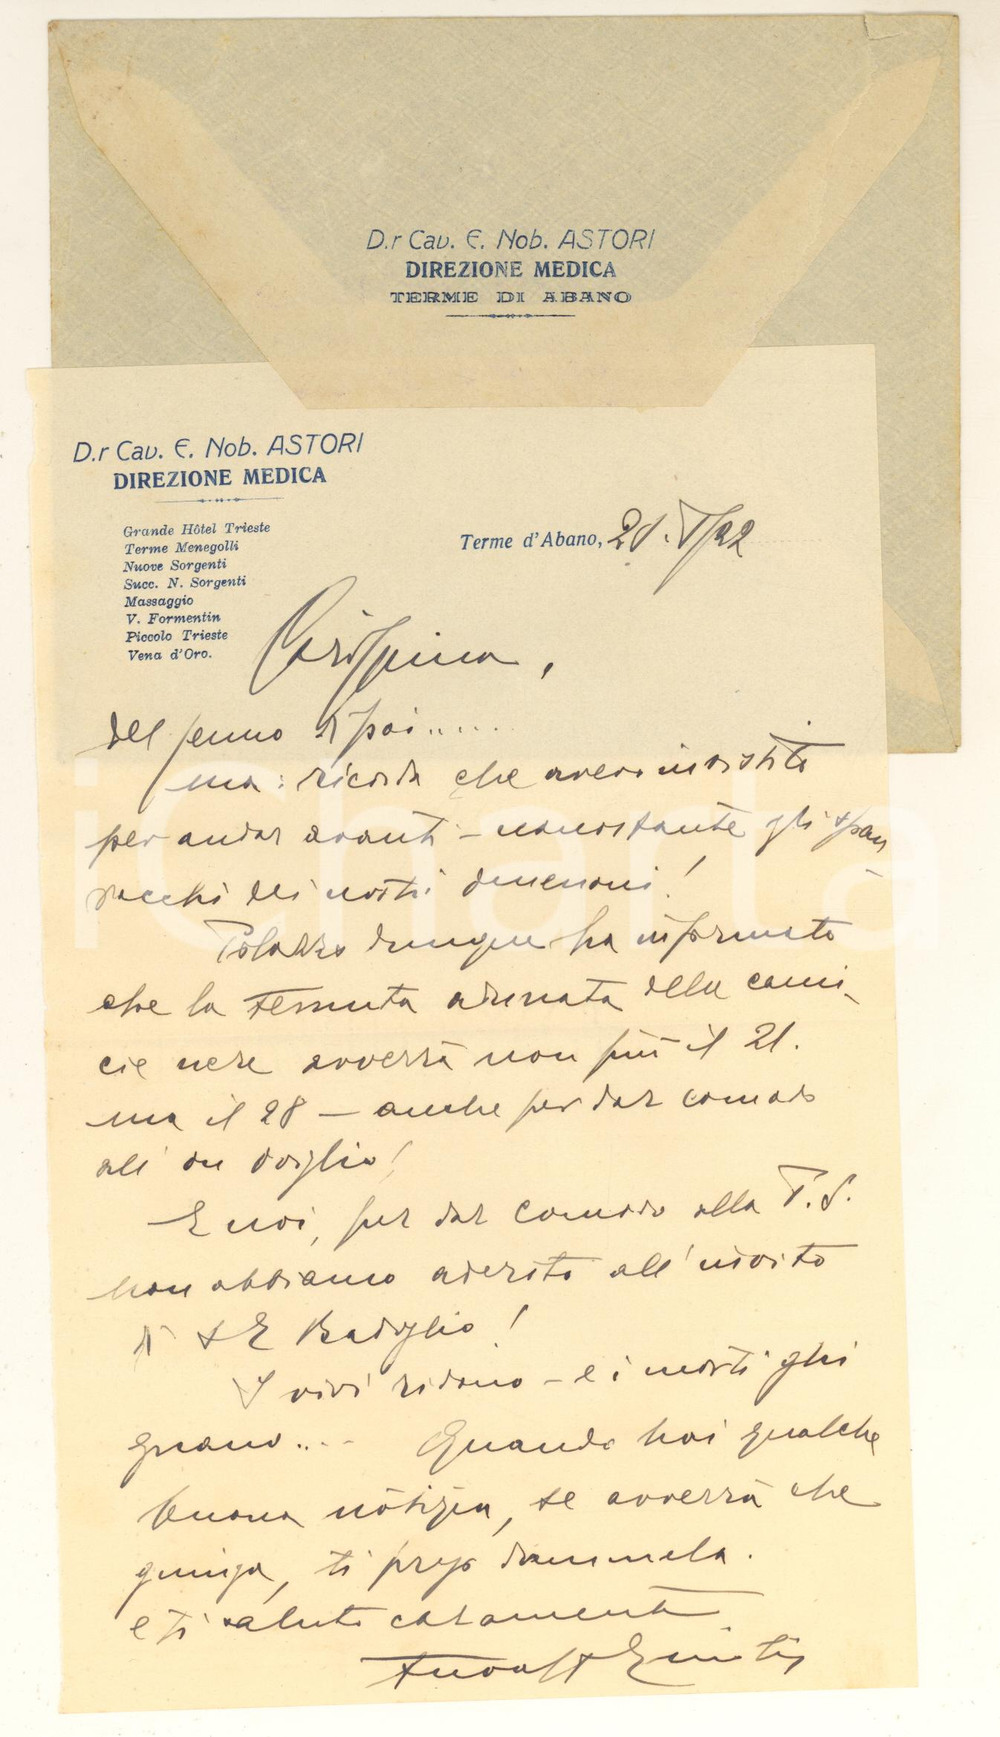 D.r Cav. E. Nob. ASTORI
DIREZIONE MEDICA
TERME DI ABANO
D.r Cav. E. Nob. ASTORI
DIREZIONE MEDICA
Grande Hôtel Trieste
Terme Menegolli
Nuove Sorgenti
Succ. N. Sorgenti
Massaggio
V. Formentin
Piccolo Trieste
Vena d'Oro.
Terme d'Abano,
del senno di poi.....
ma: ricorda che avevo insistito
per andar avanti - nonostante gli spau
racchi dei nostri
dunque ha informato
che la temuta adunata delle cami-
cie nere avverrà non più il 21.
ma il 28 - anche per dar comodo
all' on
E noi, per dar comodo alla T. S.
non abbiamo aderito all' invito
di S E Badoglio!
I vivi ridono - e i morti ghi
gnano... Quando hai qualche
buona notizia, se avverrà che
giunga, ti prego dammela.
e ti saluto caramente
iCharta